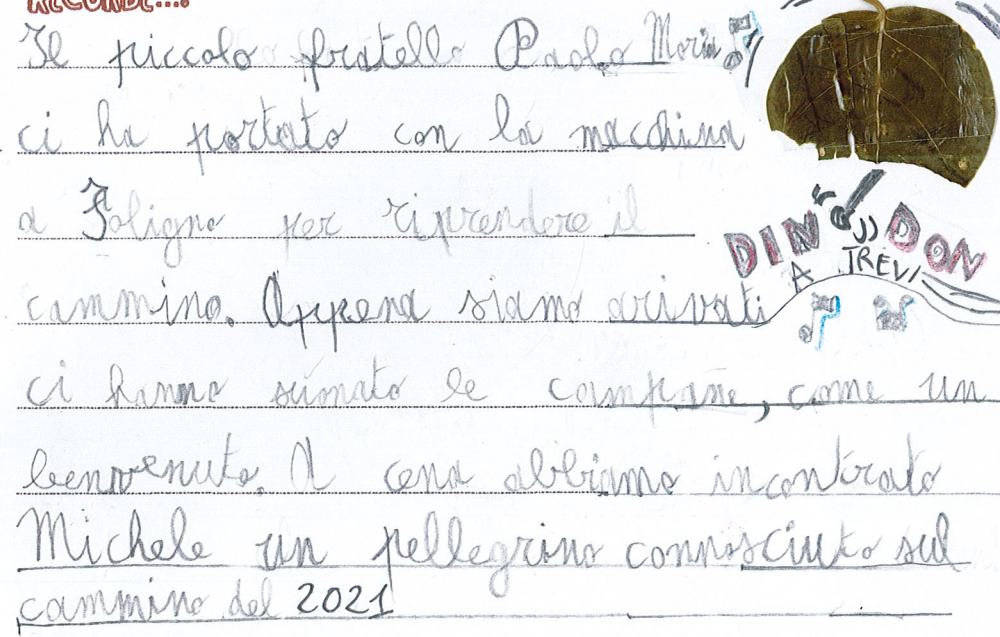 RECORDE....
Il piccolo fratello Paolo Maria
ci ha portato con la macchina
a Foligno per riprendere il
cammino. Appena siamo arivati
ci hanno suonato le campane, come un
benvenuto. A cena abbiamo incontrato
Michele un pellegrino connosciuto sul
cammino del 2021
DIN DON
A TREVI